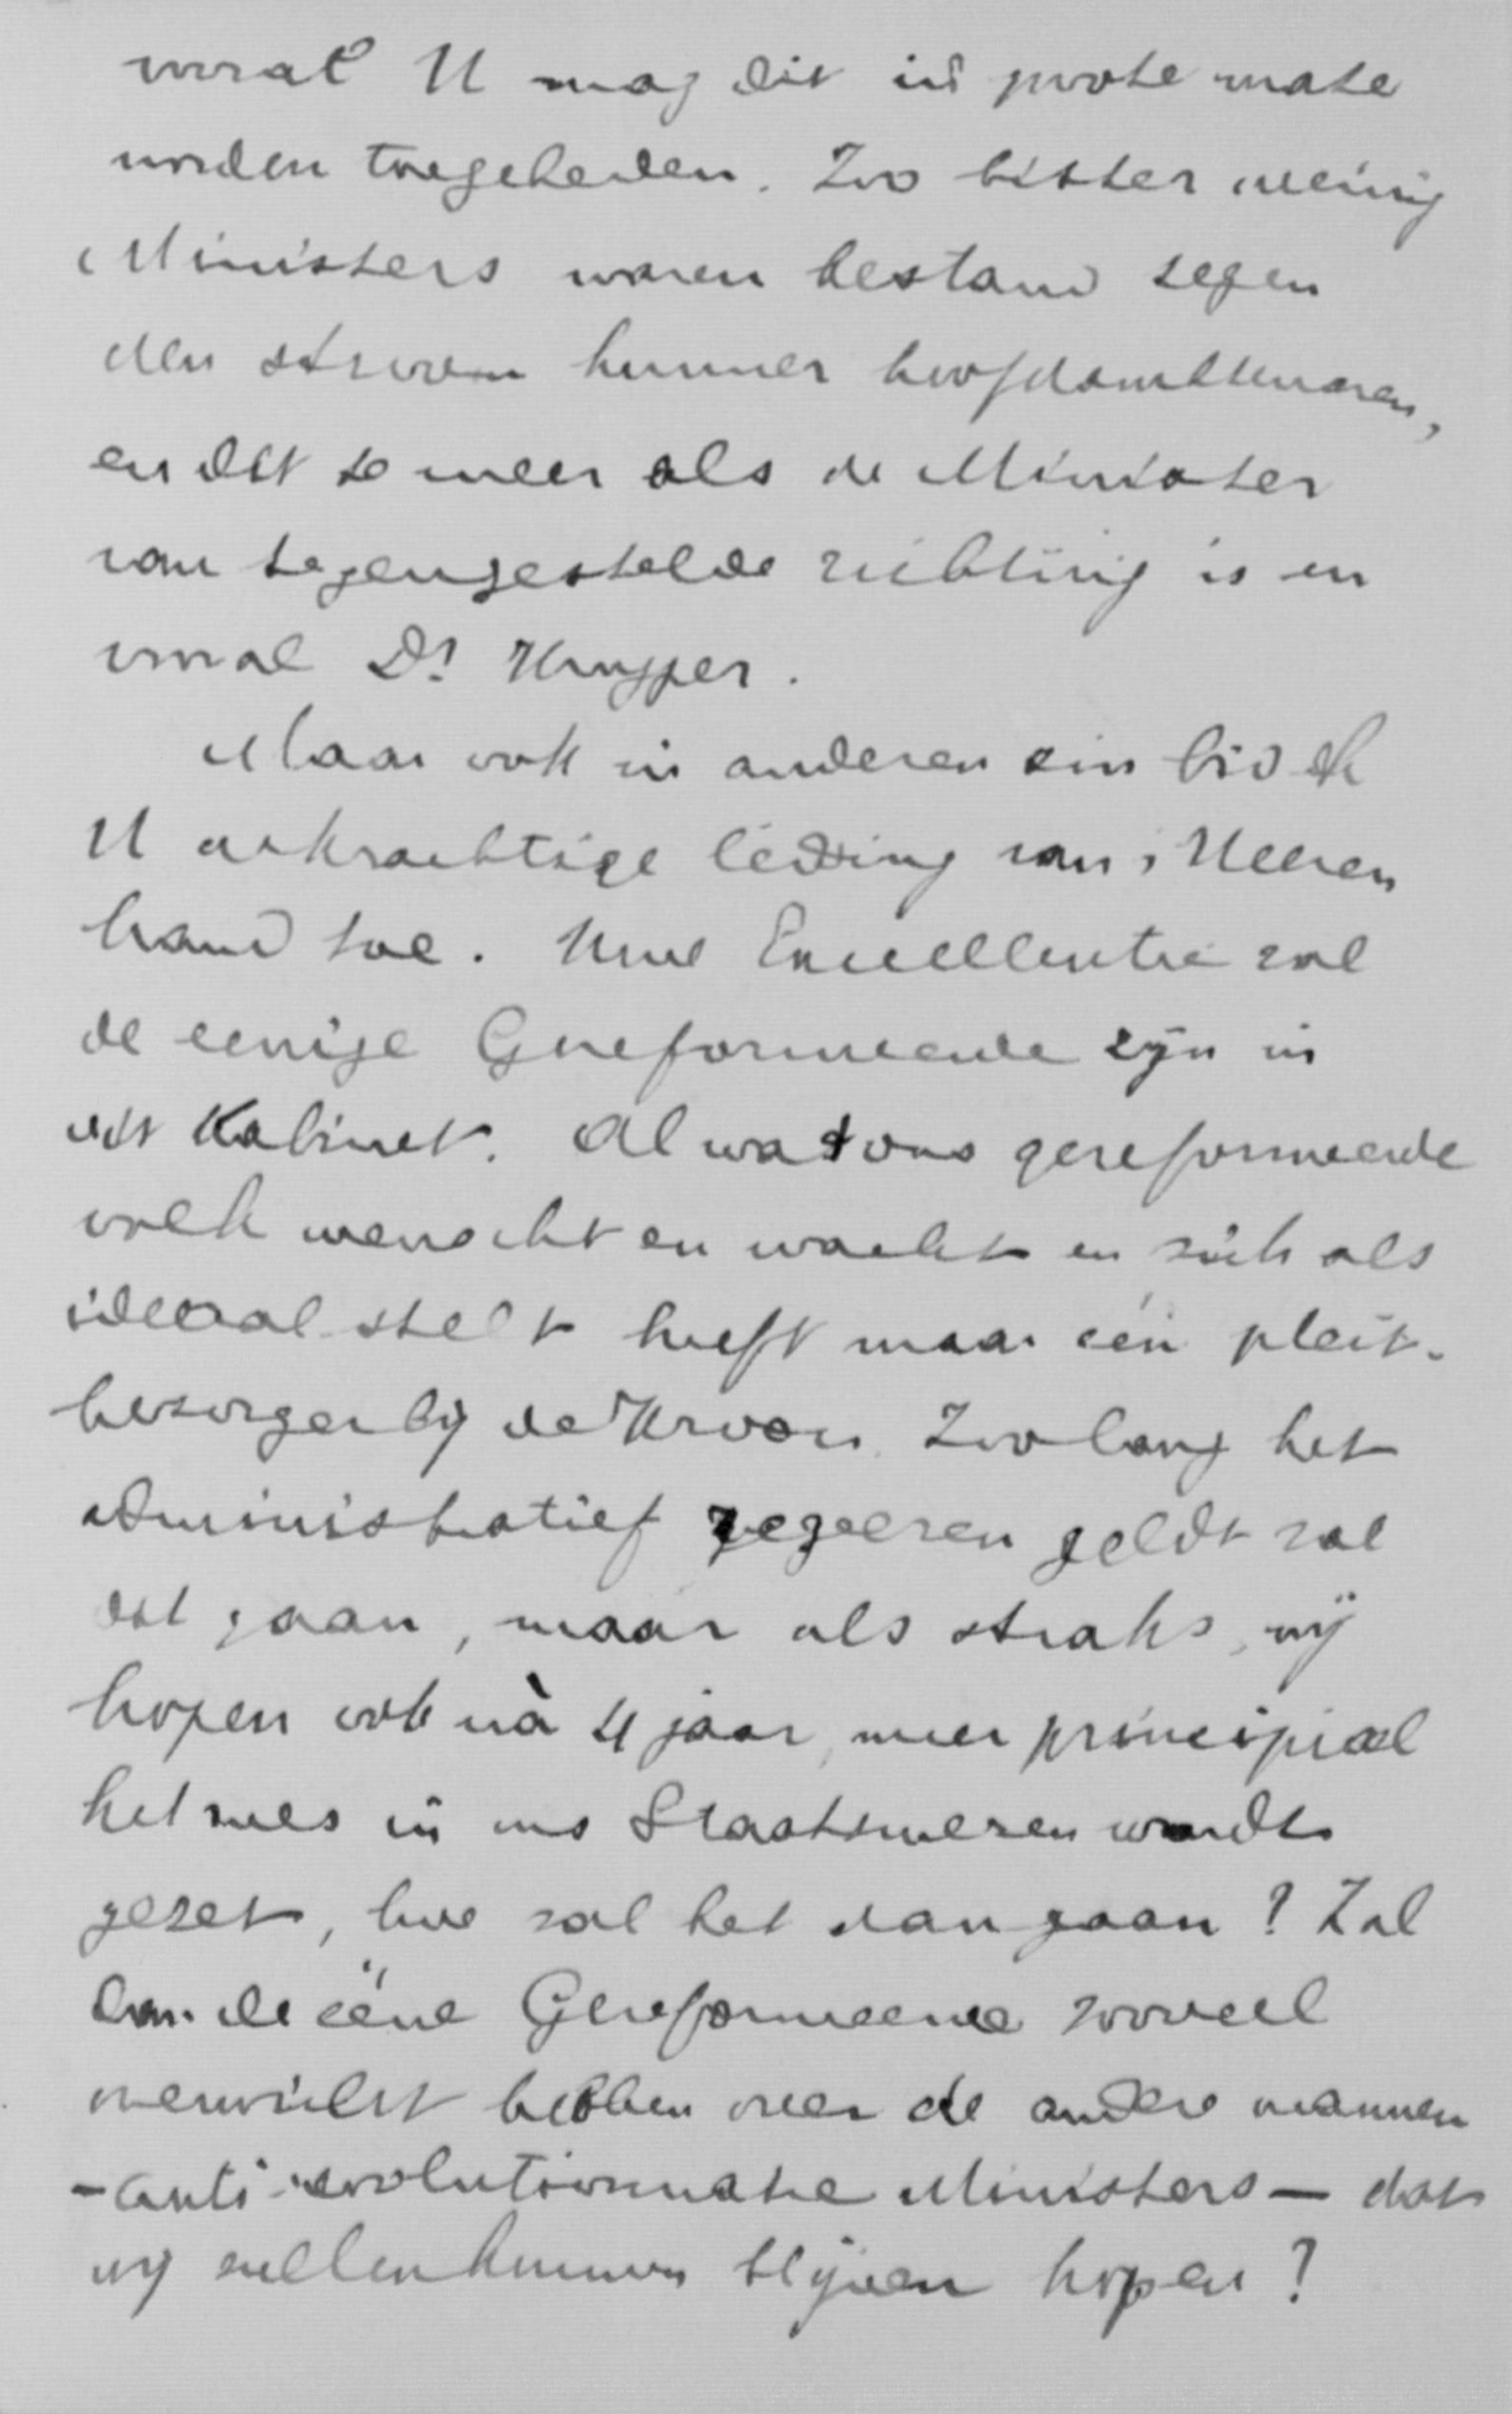 vooral U mag dit in groote mate
worden toegebeden. Zoo bitter weinig
Ministers waren bestand tegen
den stroom hunner hoofdambtenaren,
en dit te meer als de Minister
van tegengestelde richting is en
vooral Dr Kuyper.
Maar ook in anderen zin bid ik
U eene krachtige leiding van 's Heeren
hand toe. Uwe Excellentie zal
de eenige Gereformeerde zijn in
dit Kabinet. Al wat ons gereformeerde
volk wenscht en wacht en zich als
ideaal stelt heeft maar één pleit-
bezorger bij de Kroon. Zoo lang het
administratief regeeren geldt zal
dat gaan, maar als straks, wij
hopen ook nà 4 jaar, meer principieel
het mes in ons Staatswezen wordt
gezet, hoe zal het dan gaan? Zal
dan de ééne Gereformeerde zooveel
overwicht hebben over de andere mannen
- anti-revolutionnaire Ministers — dat
wij zullen kunnen blijven hopen?